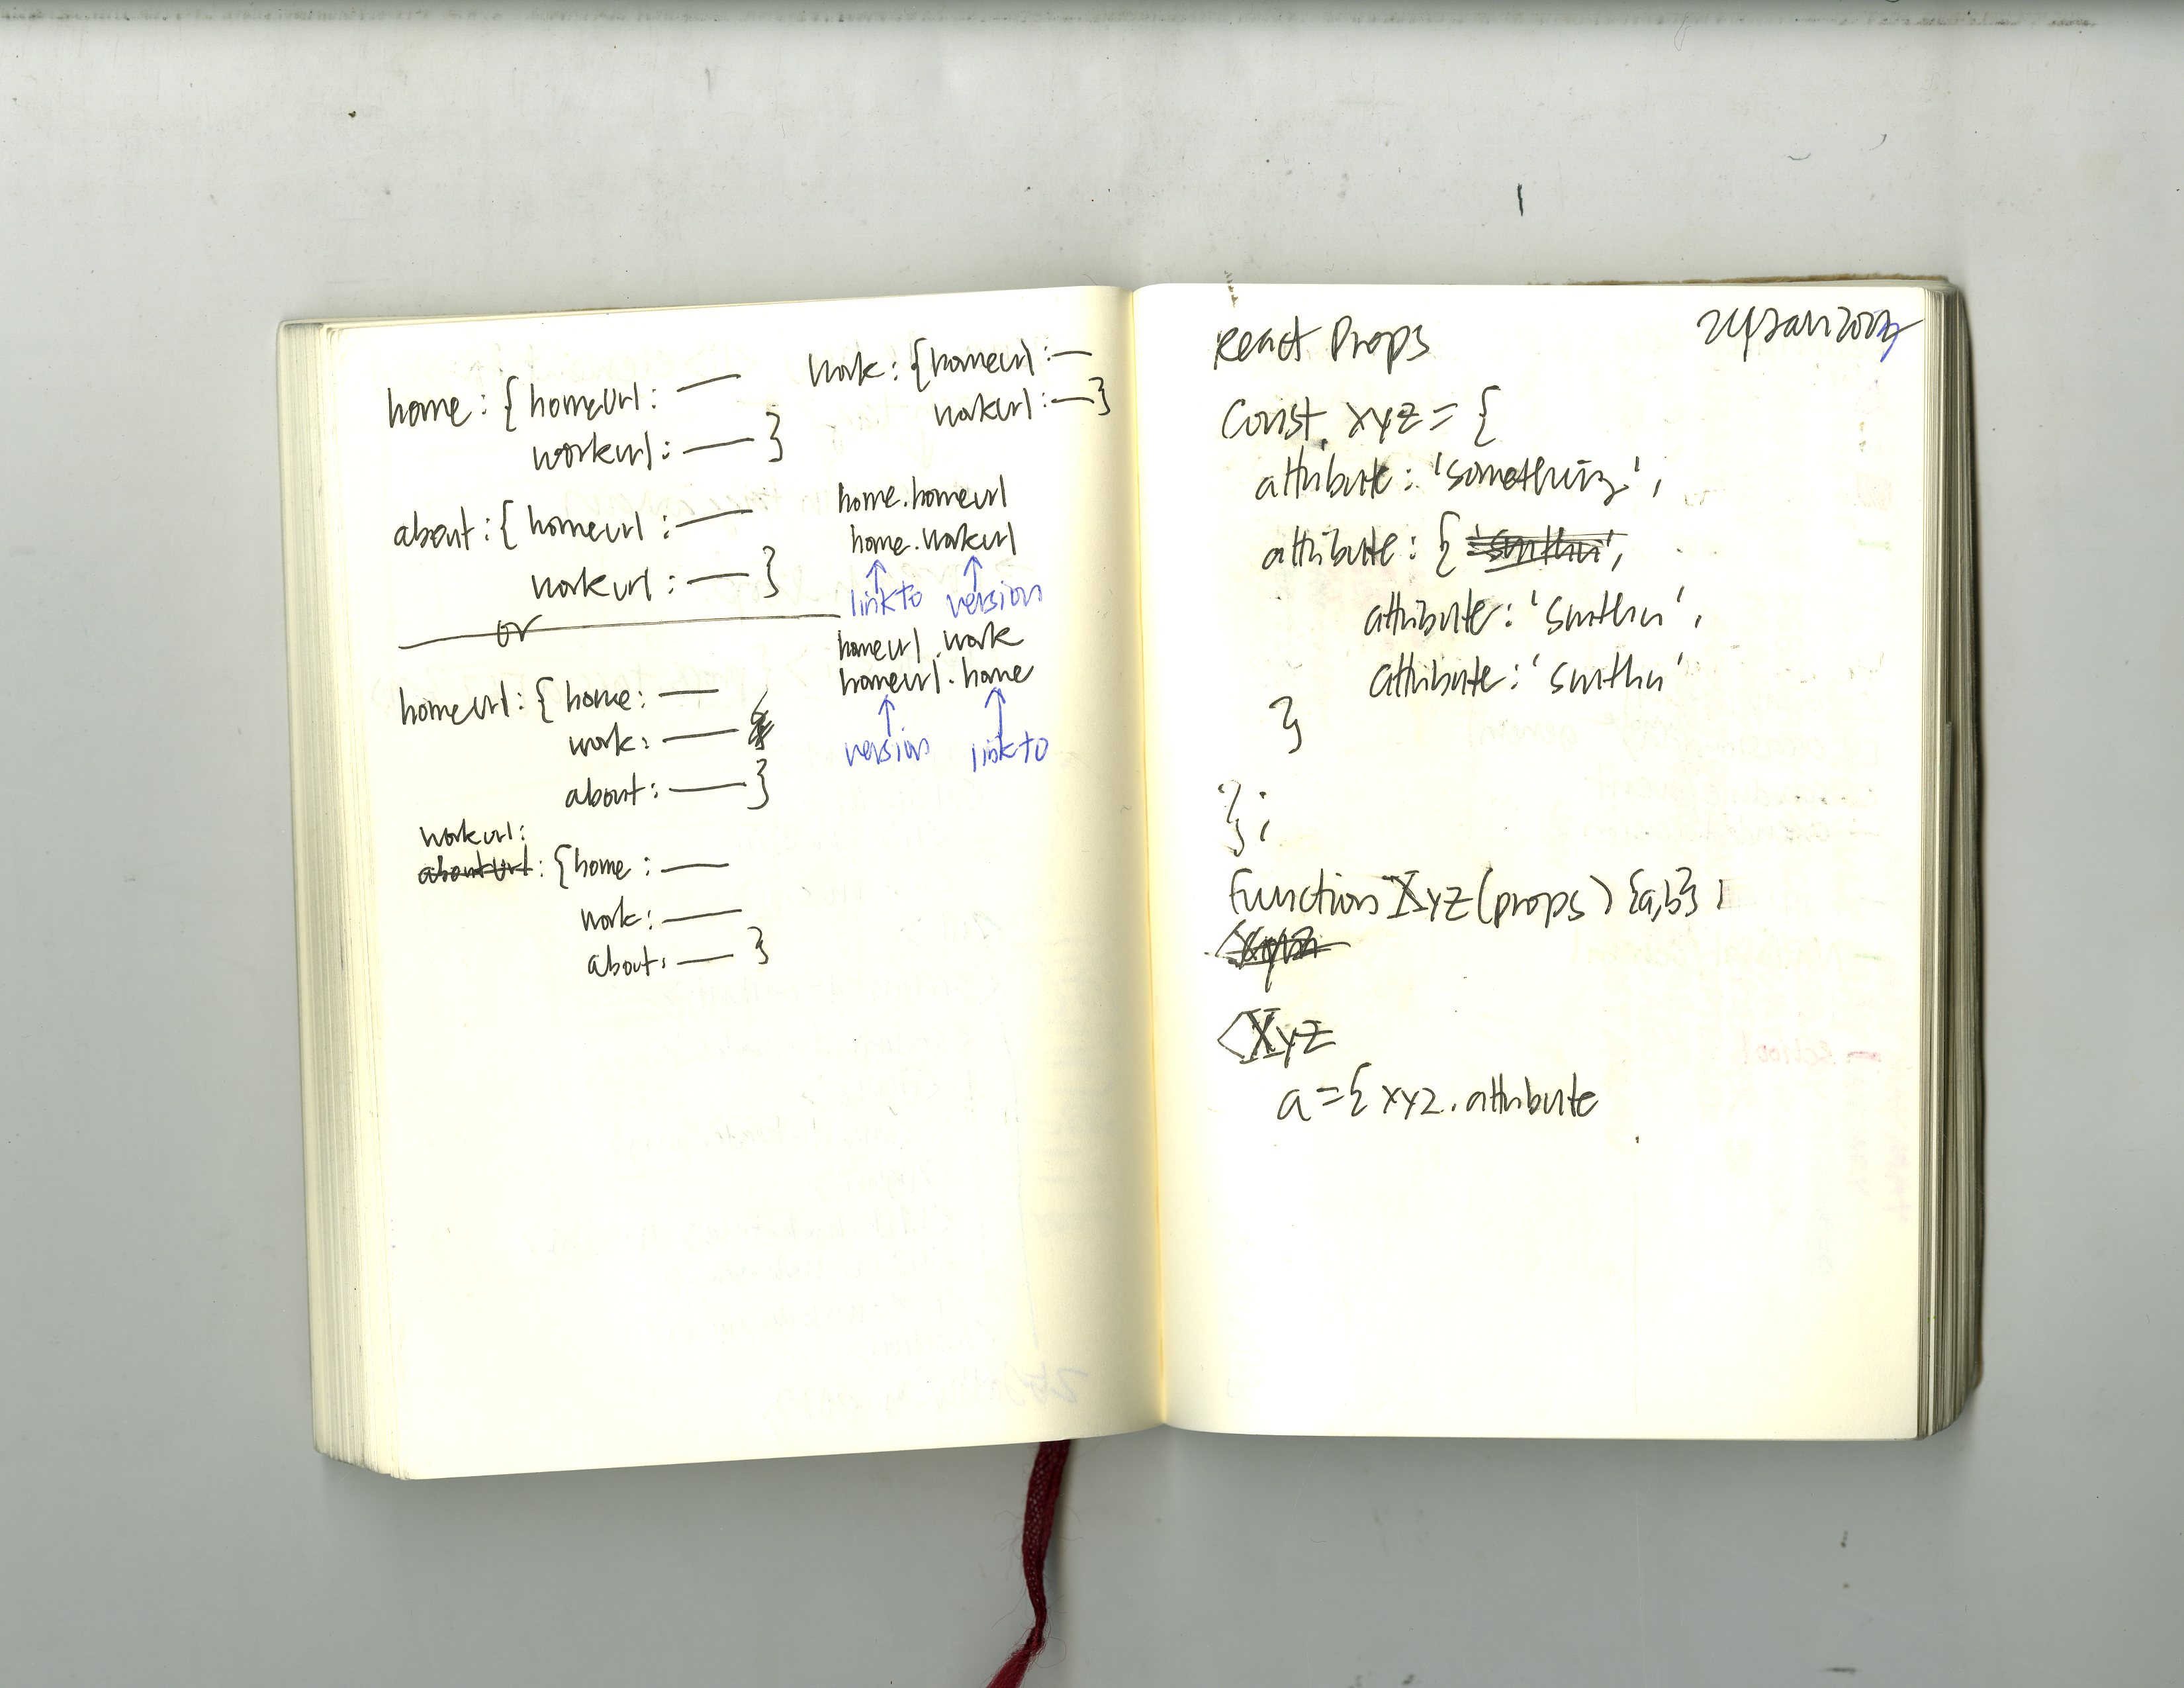 home: { homeUrl: —
workurl: — }
about: { homeurl: —
workurl: — }
or
homeurl: { home: —
work: —
about: — }
workurl:
abouturl: { home: —
work: —
about: — }
work: { homeurl: —
workurl: — }
home.homeurl
home.workurl
↑ ↑
linkto version
homeurl.work
homeurl.home
↑ ↑
version linkto
React Props
Const xyz = {
attribute: 'something',
attribute: { 'smthn',
attribute: 'smthn',
attribute: 'smthn'
}
};
Function Xyz (props) {a,b}
<Xyz
a={xyz.attribute